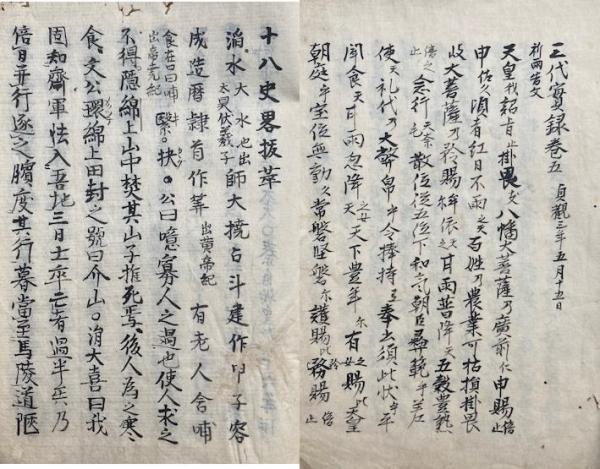 三代實録巻五 貞観三年五月十五日
祈雨告文
天皇我詔旨止掛畏支八幡大菩薩乃廣前仁申賜倍止
申佐久頃者紅日不雨之天百姓乃農業可枯損掛畏
岐大菩薩乃矜賜 依之天甘雨普降天五穀豊熟
倍之止念行天奈散位従五位下和気朝臣彝範乎差
使天礼代乃大幣帛乎令捧持天奉出須此状乎平
聞食天甘雨忽降之女天天下豊年尓有之女賜比天皇
朝庭乎宝位無動久常磐堅磐尓 賜比矜賜倍止
十八史畧抜萃
滔水 大水也出太昊伏羲 師大撓占斗建作甲子容
成造暦隷首作筭 出黄帝紀 有老人含哺
食在口曰哺出帝尭紀 抉。公曰噫寡人之過也使人求之
不得隠綿上山中焚其山子推死焉後人為之寒
食。文公環綿上田封之號曰介山。涓大喜曰我
固知齊軍怯入吾地三日士卒亡者過半矣乃
倍日并行逐之臏度其行暮當至馬陵道陿